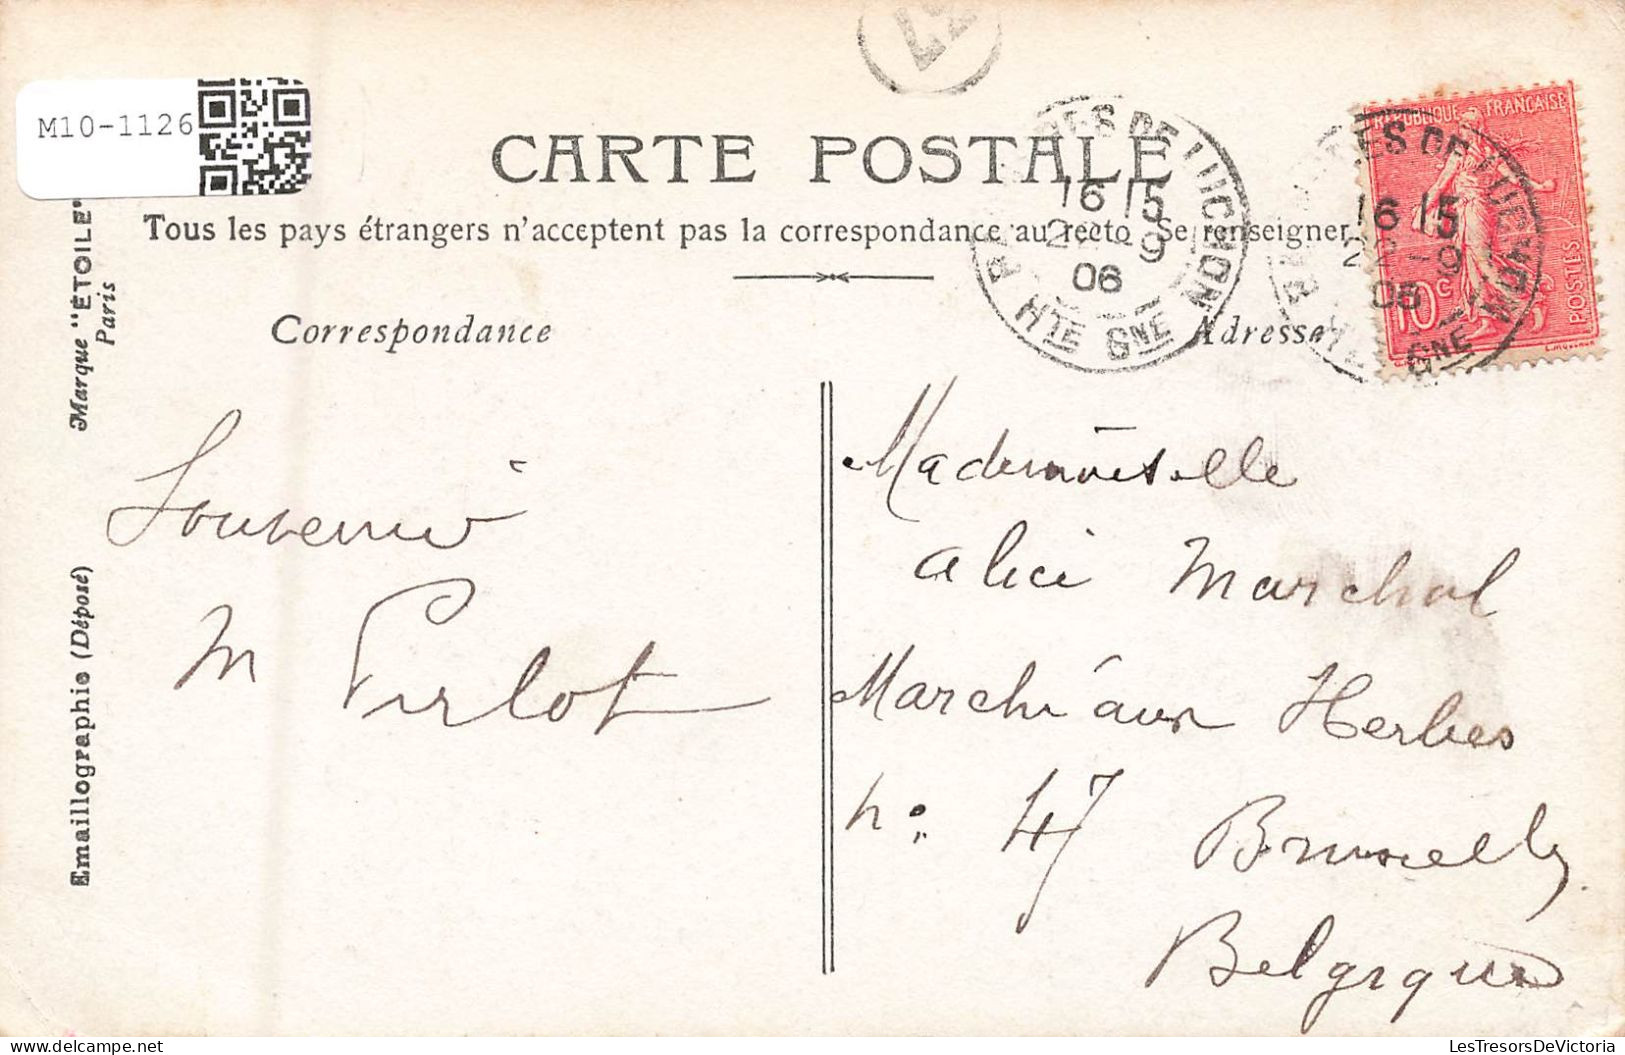 M10-1126
CARTE POSTALE
Tous les pays étrangers n'acceptent pas la correspondance au recto Se renseigner
Correspondance
Adresse
Marque "ÉTOILE"
Paris
Emaillographie (Déposé)
Souvenir
M Pirlot
Mademoiselle
Alice Marchal
Marché aux Herbes
no 47 Bruxelles
Belgique
RÉPUBLIQUE FRANÇAISE
10c
POSTES
DE LUCHON
16 15
22 -9
06
HTE GNE
LesTresorsDeVictoria